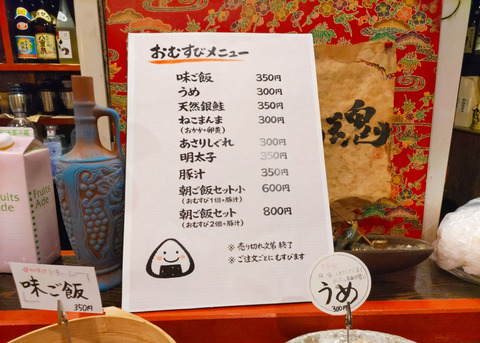 おむすびメニュー
味ご飯 350円
うめ 300円
天然銀鮭 350円
ねこまんま 300円
(おかか+卵黄)
あさりしぐれ 300円
明太子 350円
豚汁 350円
朝ご飯セット小 600円
(おむすび1個+豚汁)
朝ご飯セット 800円
(おむすび2個+豚汁)
※売り切れ次第終了
※ご注文ごとにむすびます
魂
Fruits
Ade
Fruits
Ade
味ご飯
350円
うめ
300円